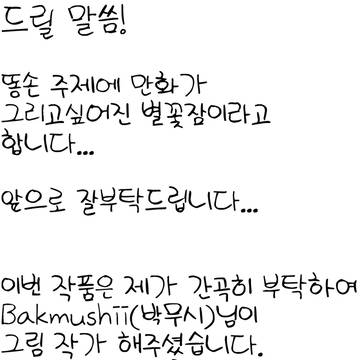 드릴 말씀!
똥손 주제에 만화가
그리고싶어진 별꽃잠이라고
합니다...
앞으로 잘부탁드립니다...
이번 작품은 제가 간곡히 부탁하여
Bakmushii(박무시)님이
그림 작가 해주셨습니다.